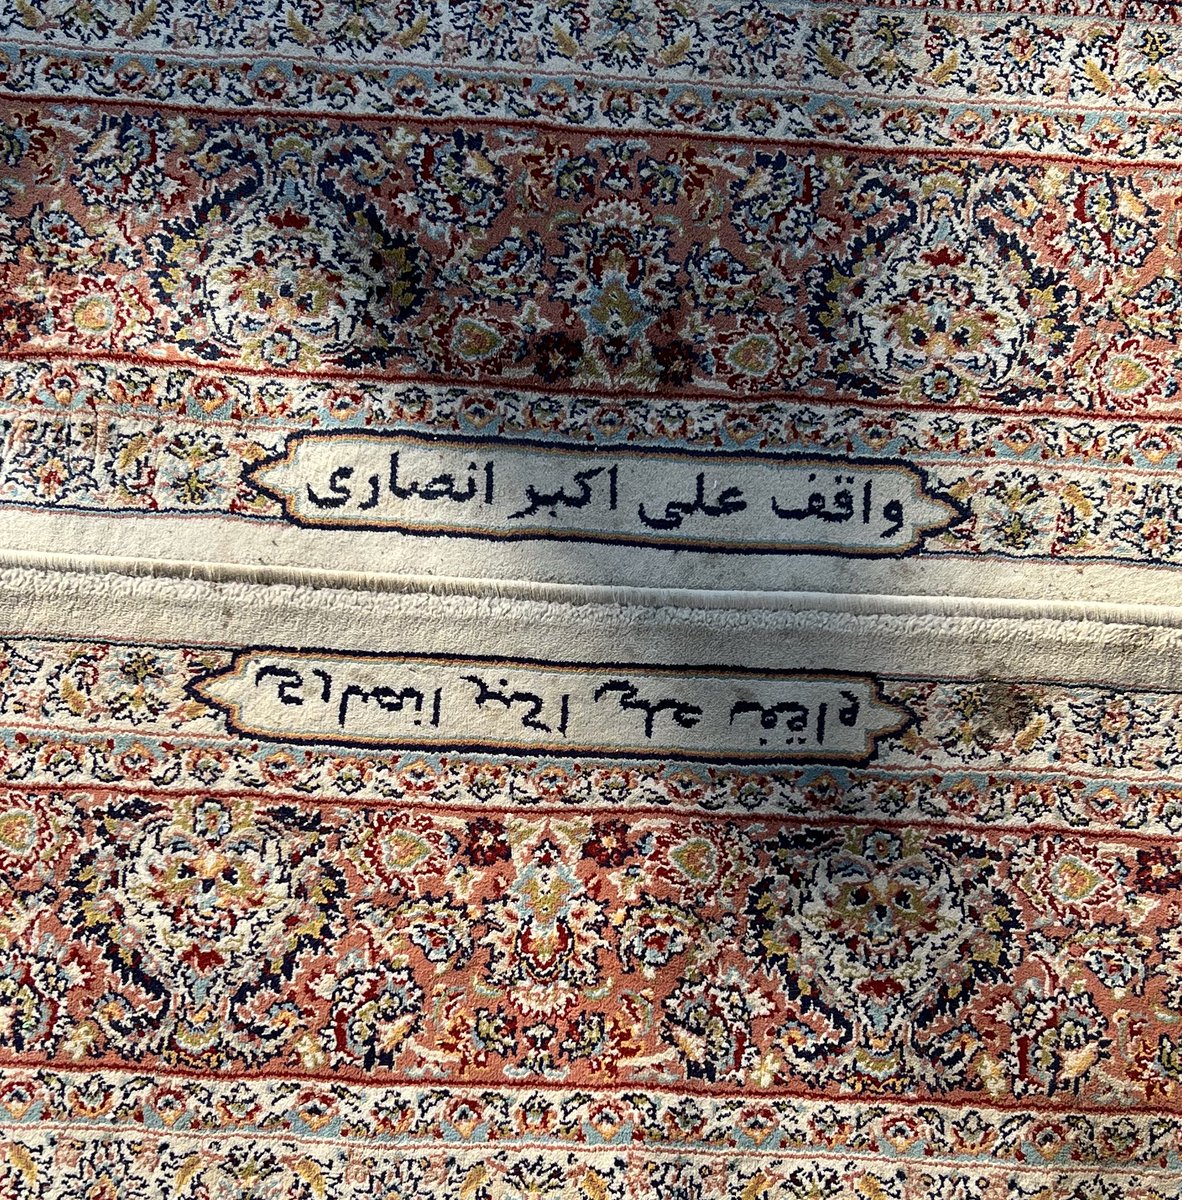 واقف علی اکبر انصاری
واقف علی اکبر انصاری